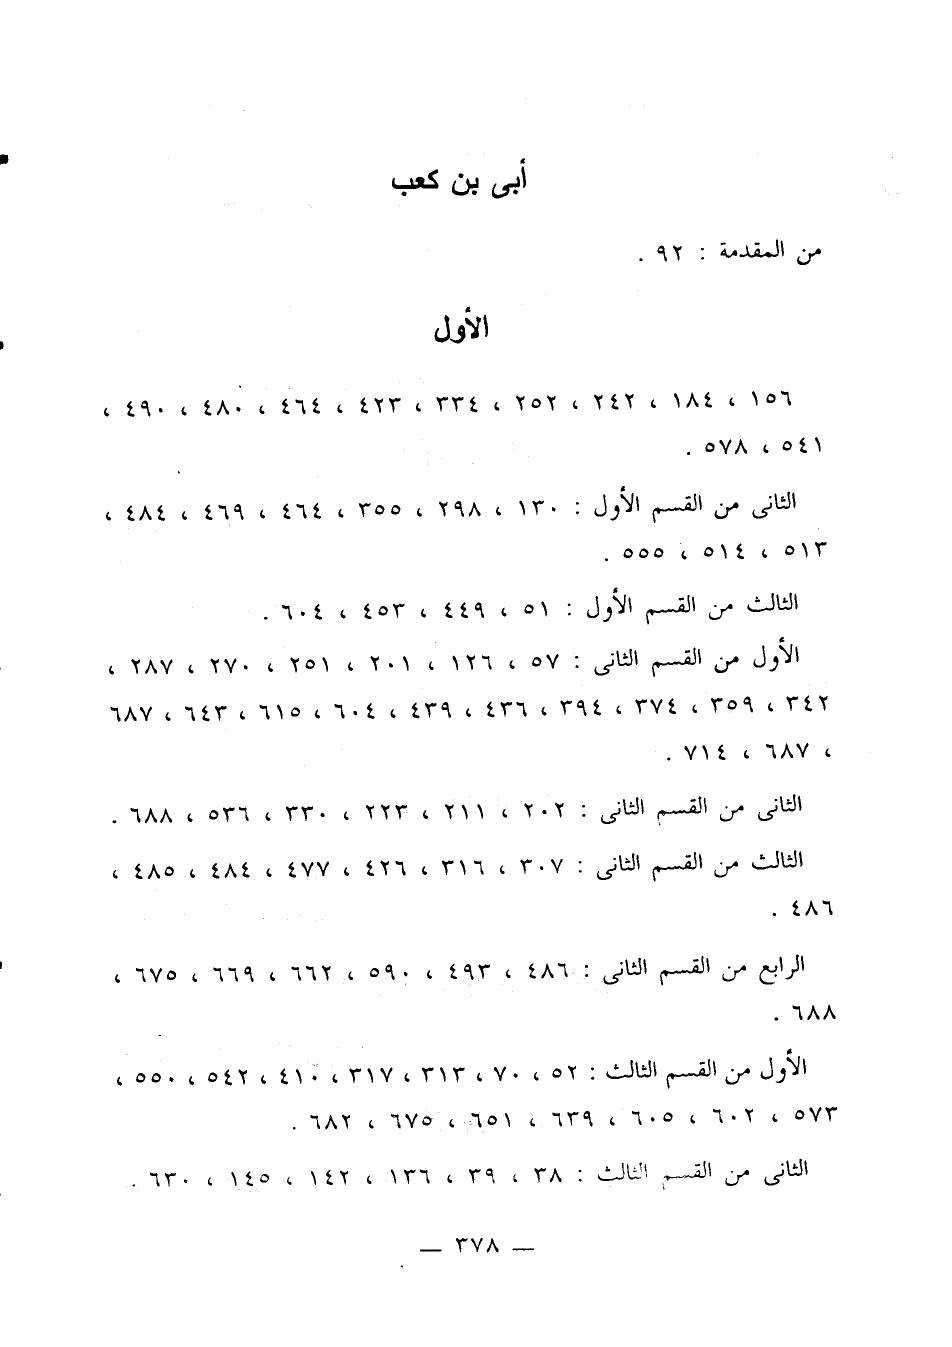 أبى بن كعب
من المقدمة : ٩٢ .
الأول
١٥٦ ، ١٨٤ ، ٢٤٢ ، ٢٥٢ ، ٣٣٤ ، ٤٢٣ ، ٤٦٤ ، ٤٨٠ ، ٤٩٠ ،
٥٤١ ، ٥٧٨ .
الثانى من القسم الأول : ١٣٠ ، ٢٩٨ ، ٣٥٥ ، ٤٦٤ ، ٤٦٩ ، ٤٨٤ ،
٥١٣ ، ٥١٤ ، ٥٥٥ .
الثالث من القسم الأول : ٥١ ، ٤٤٩ ، ٤٥٣ ، ٦٠٤ .
الأول من القسم الثانى : ٥٧ ، ١٢٦ ، ٢٠١ ، ٢٥١ ، ٢٧٠ ، ٢٨٧ ،
٣٤٢ ، ٣٥٩ ، ٣٧٤ ، ٣٩٤ ، ٤٣٦ ، ٤٣٩ ، ٦٠٤ ، ٦١٥ ، ٦٤٣ ، ٦٨٧
، ٦٨٧ ، ٧١٤ .
الثانى من القسم الثانى : ٢٠٢ ، ٢١١ ، ٢٢٣ ، ٣٣٠ ، ٥٣٦ ، ٦٨٨ .
الثالث من القسم الثانى : ٣٠٧ ، ٣١٦ ، ٤٢٦ ، ٤٧٧ ، ٤٨٤ ، ٤٨٥ ،
٤٨٦ .
الرابع من القسم الثانى : ٤٨٦ ، ٤٩٣ ، ٥٩٠ ، ٦٦٢ ، ٦٦٩ ، ٦٧٥ ،
٦٨٨ .
الأول من القسم الثالث : ٥٢ ، ٧٠ ، ٣١٣ ، ٣١٧ ، ٤١٠ ، ٥٤٢ ، ٥٥٠ ،
٥٧٣ ، ٦٠٢ ، ٦٠٥ ، ٦٣٩ ، ٦٥١ ، ٦٧٥ ، ٦٨٢ .
الثانى من القسم الثالث : ٣٨ ، ٣٩ ، ١٣٦ ، ١٤٢ ، ١٤٥ ، ٦٣٠ .
— ٣٧٨ —